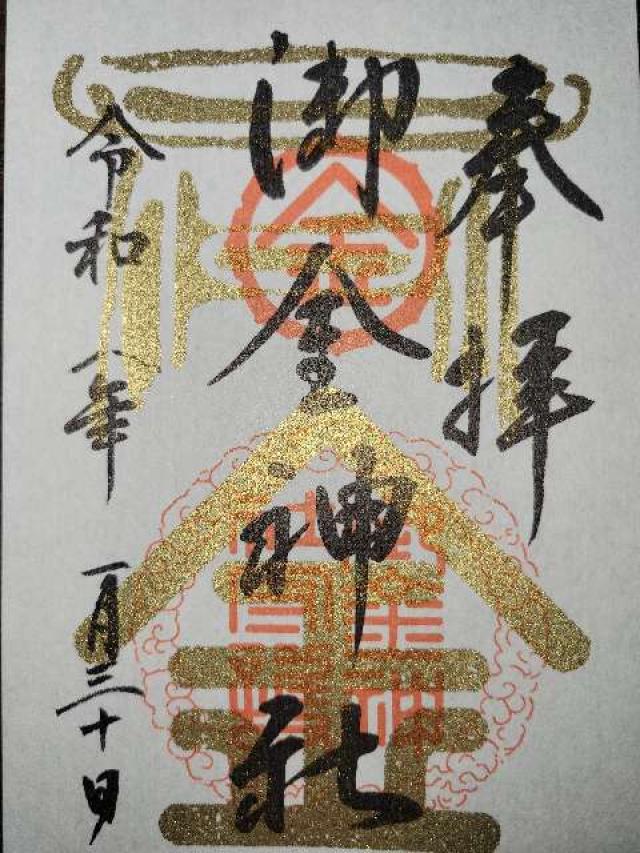 奉拝
御金神社
令和八年一月三十日
金